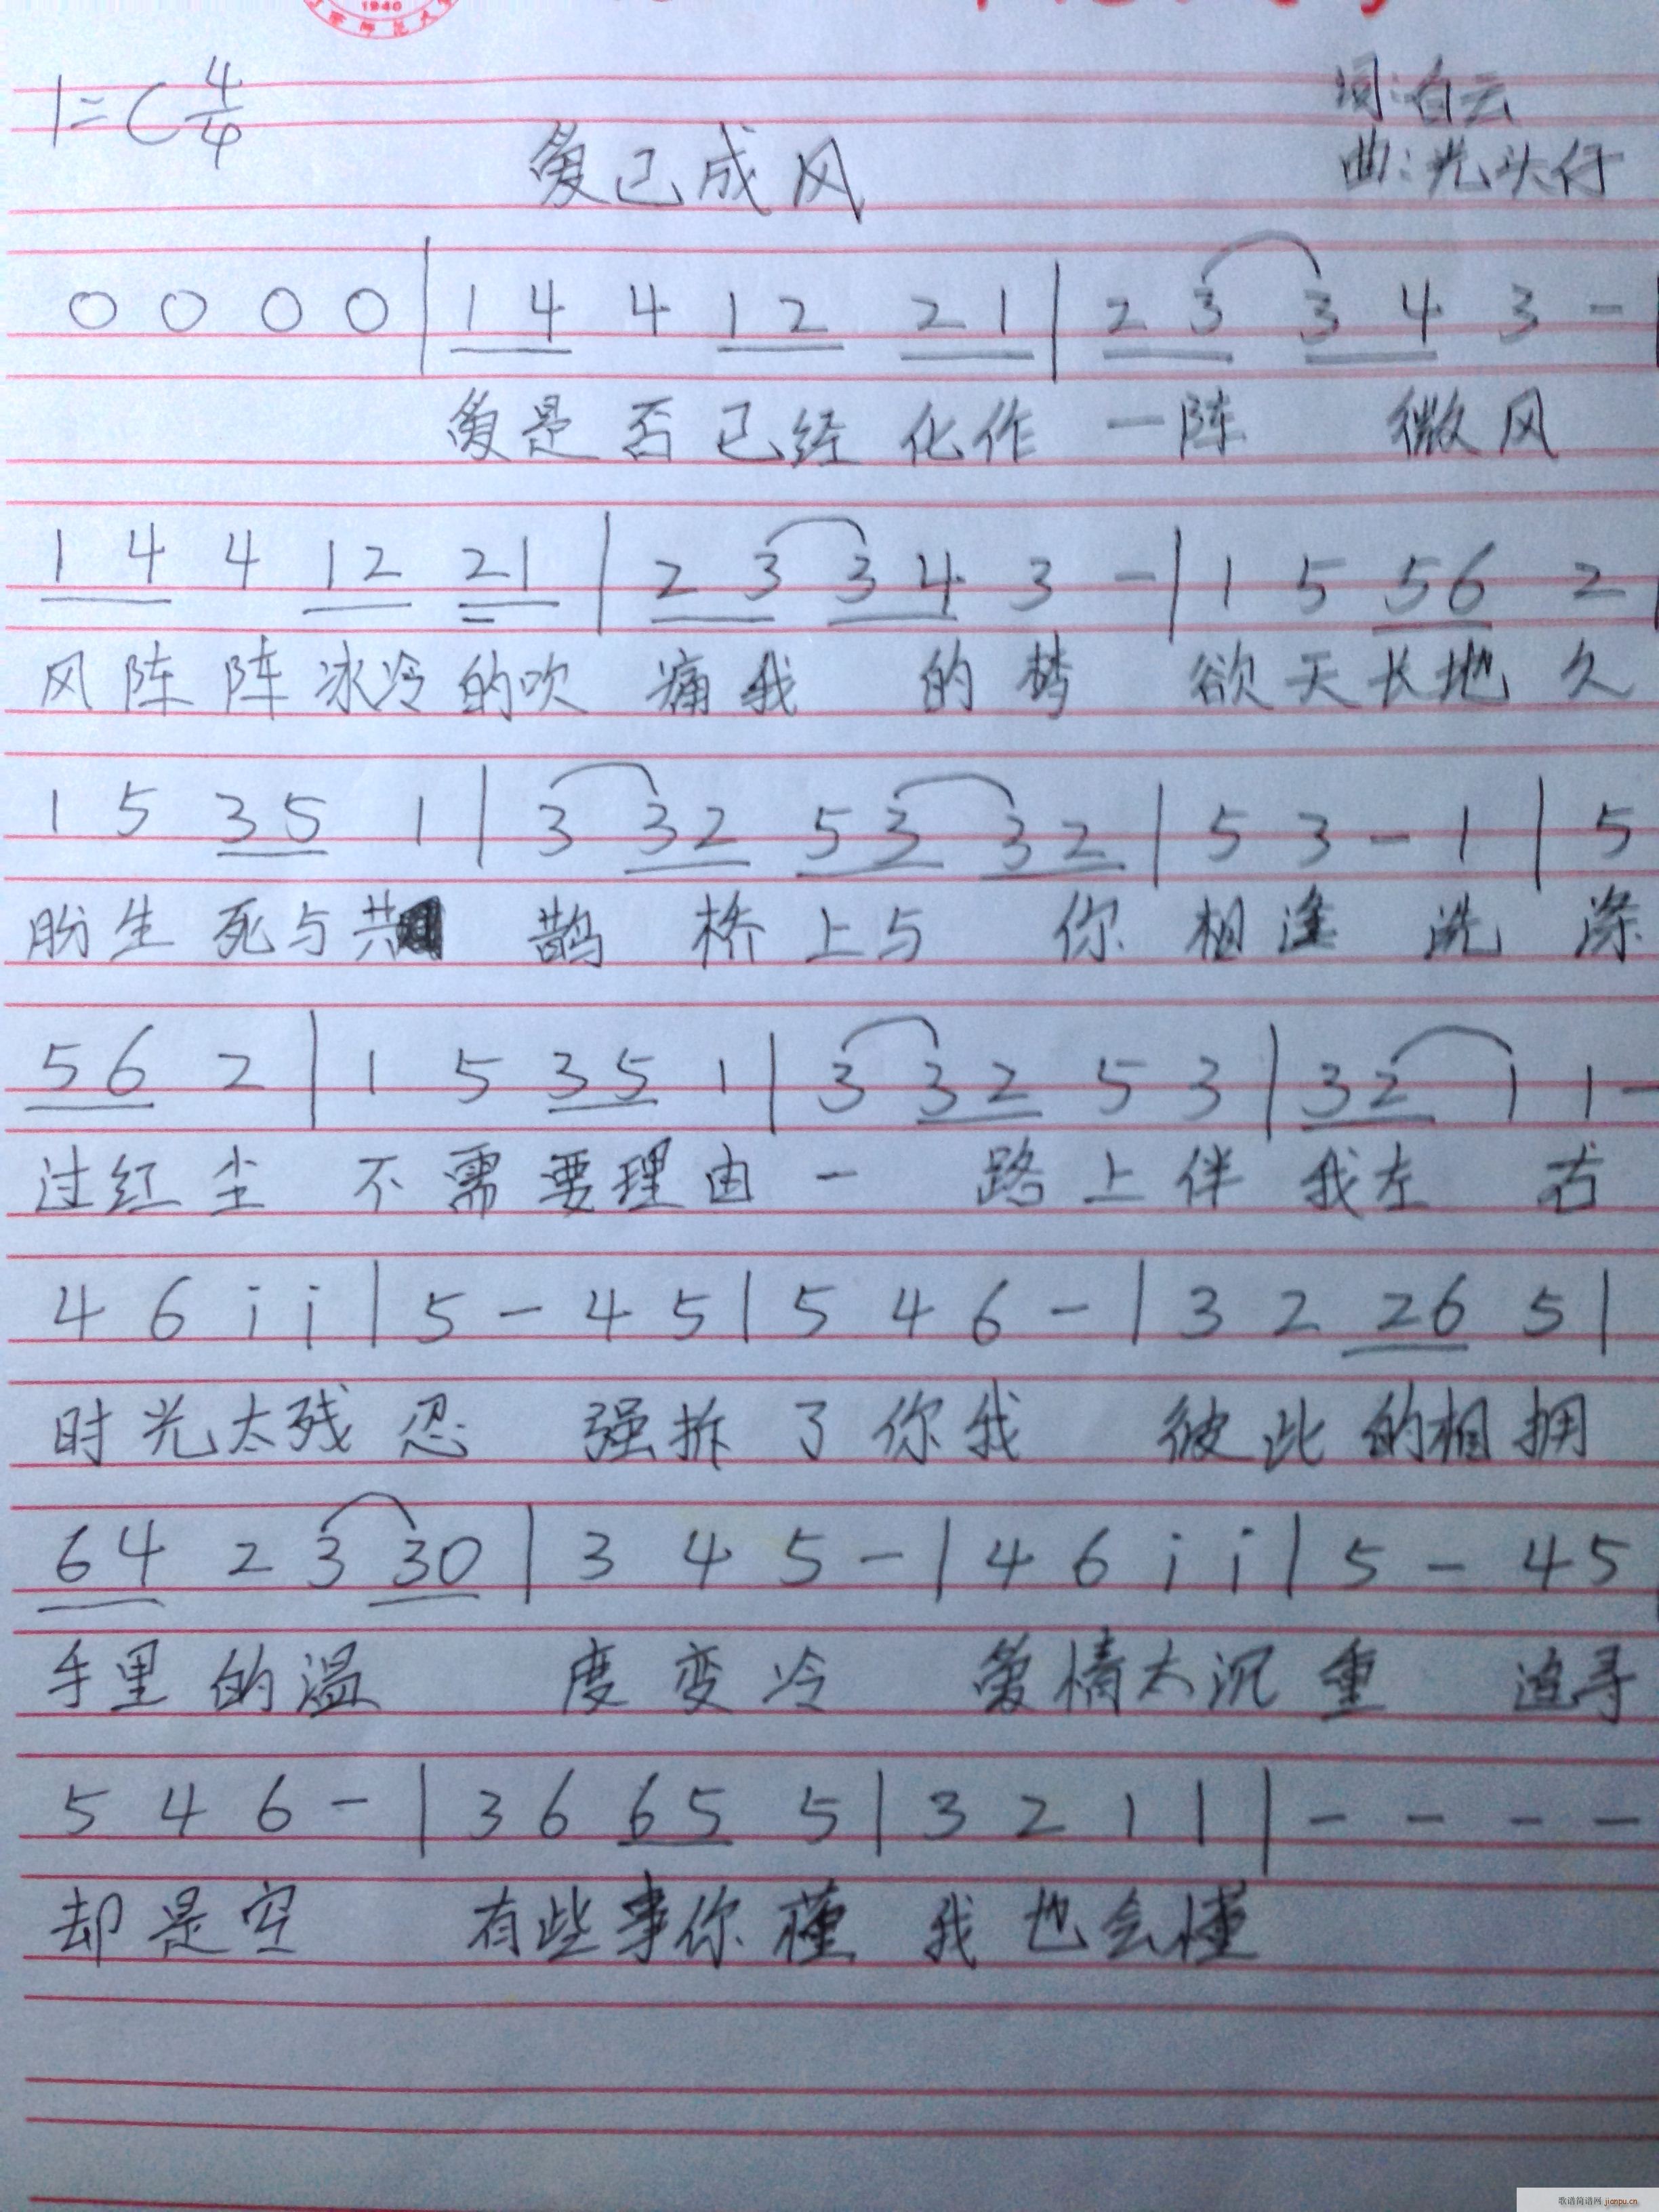 1940
1=C 4/4
词:白云
爱已成风
曲:光头仔
0 0 0 0 | 1 4 4 1 2 2 1 | 2 3 3 4 3 - |
爱是否已经化作一阵 微风
1 4 4 1 2 2 1 | 2 3 3 4 3 - | 1 5 5 6 2 |
风阵阵冰冷的吹 痛我 的梦 欲天长地久
1 5 3 5 1 | 3 3 2 5 3 3 2 | 5 3 - 1 | 5
盼生死与共 鹊 桥上与 你 相逢 洗 涤
5 6 2 | 1 5 3 5 1 | 3 3 2 5 3 | 3 2 1 1 -
过红尘 不需要理由 一 路上伴我左 右
4 6 i i | 5 - 4 5 | 5 4 6 - | 3 2 2 6 5 |
时光太残忍 强拆了你我 彼此的相拥
6 4 2 3 3 0 | 3 4 5 - | 4 6 i i | 5 - 4 5
手里的温 度变冷 爱情太沉重 追寻
5 4 6 - | 3 6 6 5 5 | 3 2 1 1 | - - - -
却是空 有些事你懂 我也会懂
歌谱简谱网 jianpu.cn